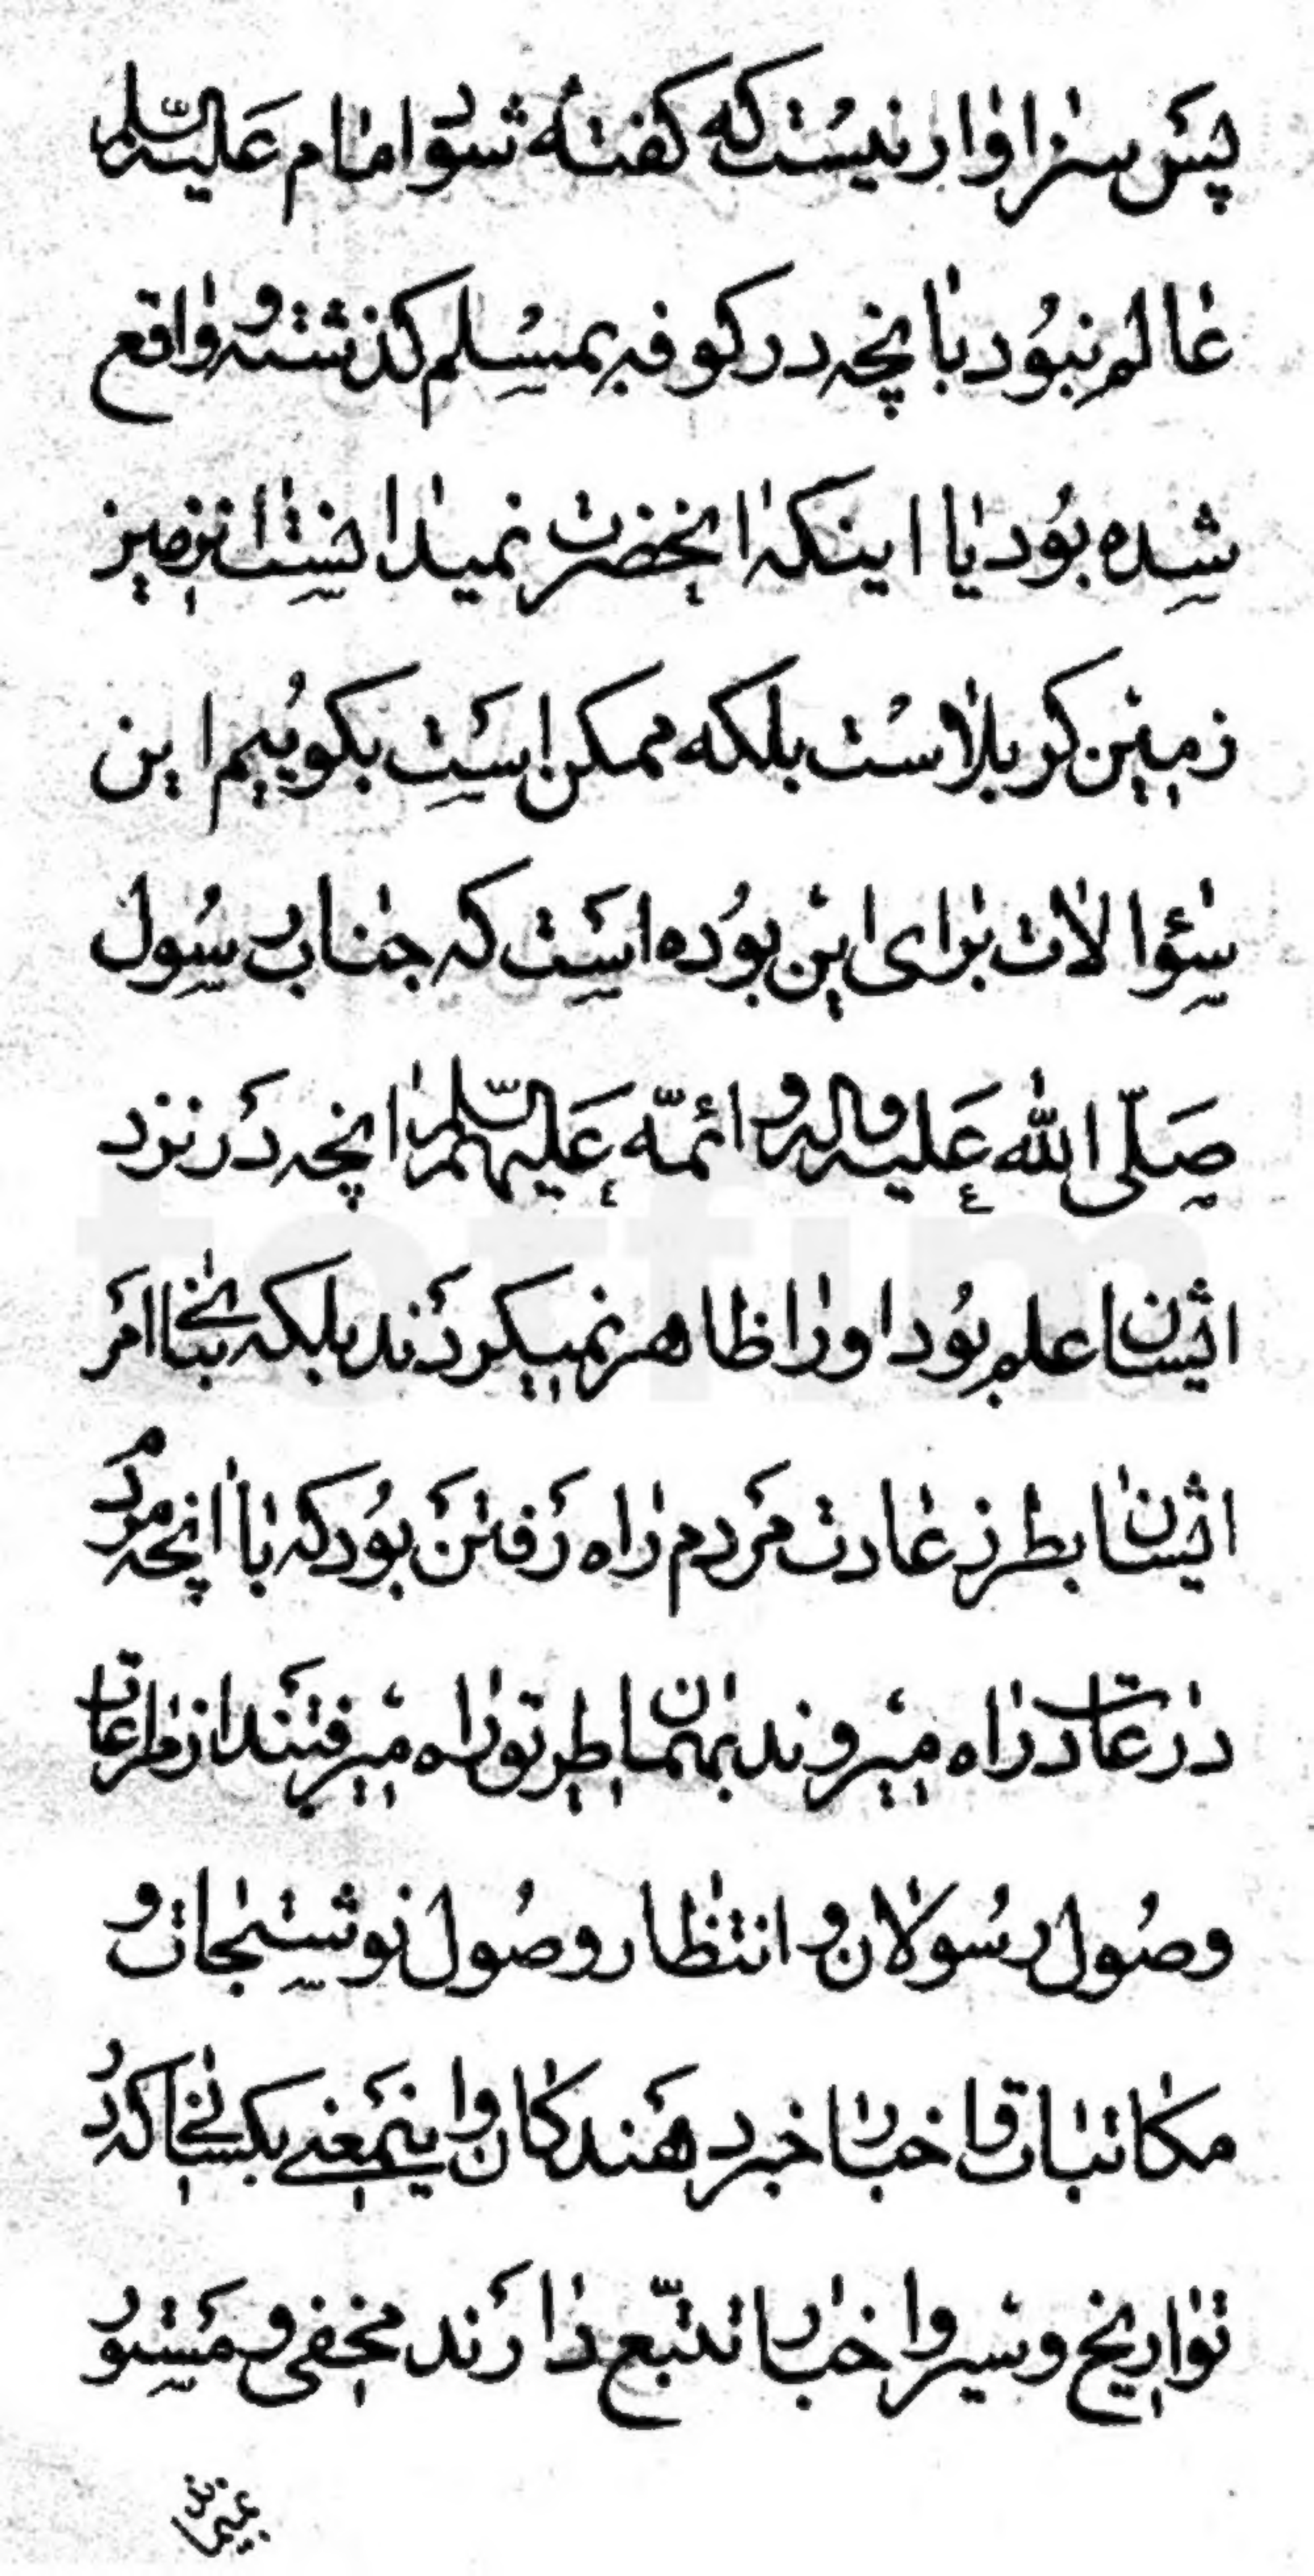 پس سزاوار نیست که کفته شود امام علیه السّلم
عالم نبود بانچه در کوفه بمسلم کذشته و واقع
شده بود یا اینکه انحضرت نمیدانست انزمین
زمین کربلاست بلکه ممکن است بکوییم این
سئوالات برای این بوده است که جناب رسول
صلّی الله علیه واله و ائمّه علیهم السّلم انچه در نزد
ایشان علم بود او را ظاهر نمیکردند بلکه بناء امر
ایشان بطرز عادت مردم راه رفتن بود که با انچه مردم
در عادت راه میروند بهمان طور راه میرفتند از طرز عادت
وصول رسولان و انتظار وصول نوشتجات و
مکاتبات و اخبار خبر دهندکان و اینمعنی بکسانیکه در
تواریخ و سیر و اخبار تتبّع دارند مخفی و مستور
نمیماند